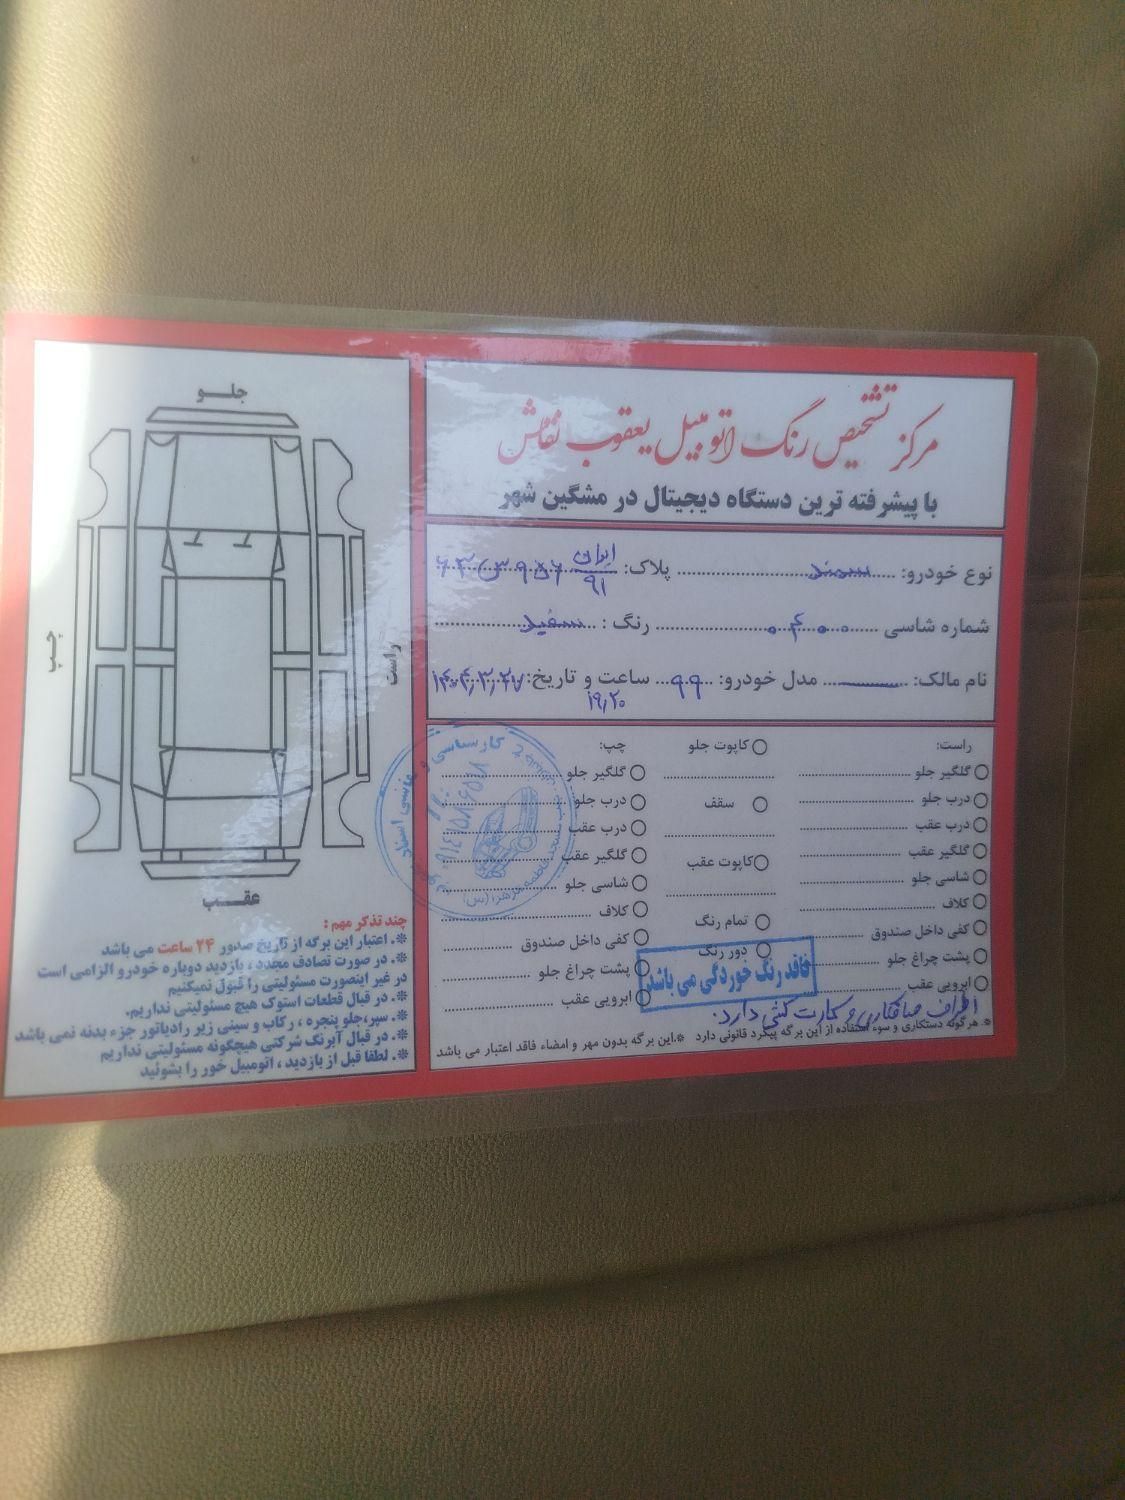 مرکز تشخیص رنگ اتومبیل یعقوب نقاش
با پیشرفته ترین دستگاه دیجیتال در مشگین شهر
نوع خودرو: سمند پلاک: ایران ۹۱
شماره شاسی ۰۴۰۰ رنگ: سفید
نام مالک: مدل خودرو: ۹۹ ساعت و تاریخ: ۱۴۰۴,۳,۲۷
۱۹,۲۰
راست:
گلگیر جلو
درب جلو
درب عقب
گلگیر عقب
شاسی جلو
کلاف
کفی داخل صندوق
پشت چراغ جلو
ابرویی عقب
کاپوت جلو
سقف
کاپوت عقب
تمام رنگ
دور رنگ
چپ:
گلگیر جلو
درب جلو
درب عقب
گلگیر عقب
شاسی جلو
کلاف
کفی داخل صندوق
پشت چراغ جلو
ابرویی عقب
فاقد رنگ خوردگی می باشد
اطراف صافکاری و کارت کشی دارد.
*. هرگونه دستکاری و سوء استفاده از این برگه پیگرد قانونی دارد *.این برگه بدون مهر و امضاء فاقد اعتبار می باشد
کارشناسی و
جلو
چپ
راست
عقب
چند تذکر مهم :
*. اعتبار این برگه از تاریخ صدور ۲۴ ساعت می باشد
*. در صورت تصادف مجدد، بازدید دوباره خودرو الزامی است
در غیر اینصورت مسئولیتی را قبول نمیکنیم
*. در قبال قطعات استوک هیچ مسئولیتی نداریم.
*. سپر،جلو پنجره ، رکاب و سینی زیر رادیاتور جزء بدنه نمی باشد
*. در قبال آبرنگ شرکتی هیچگونه مسئولیتی نداریم
*. لطفا قبل از بازدید ، اتومبیل خور را بشوئید